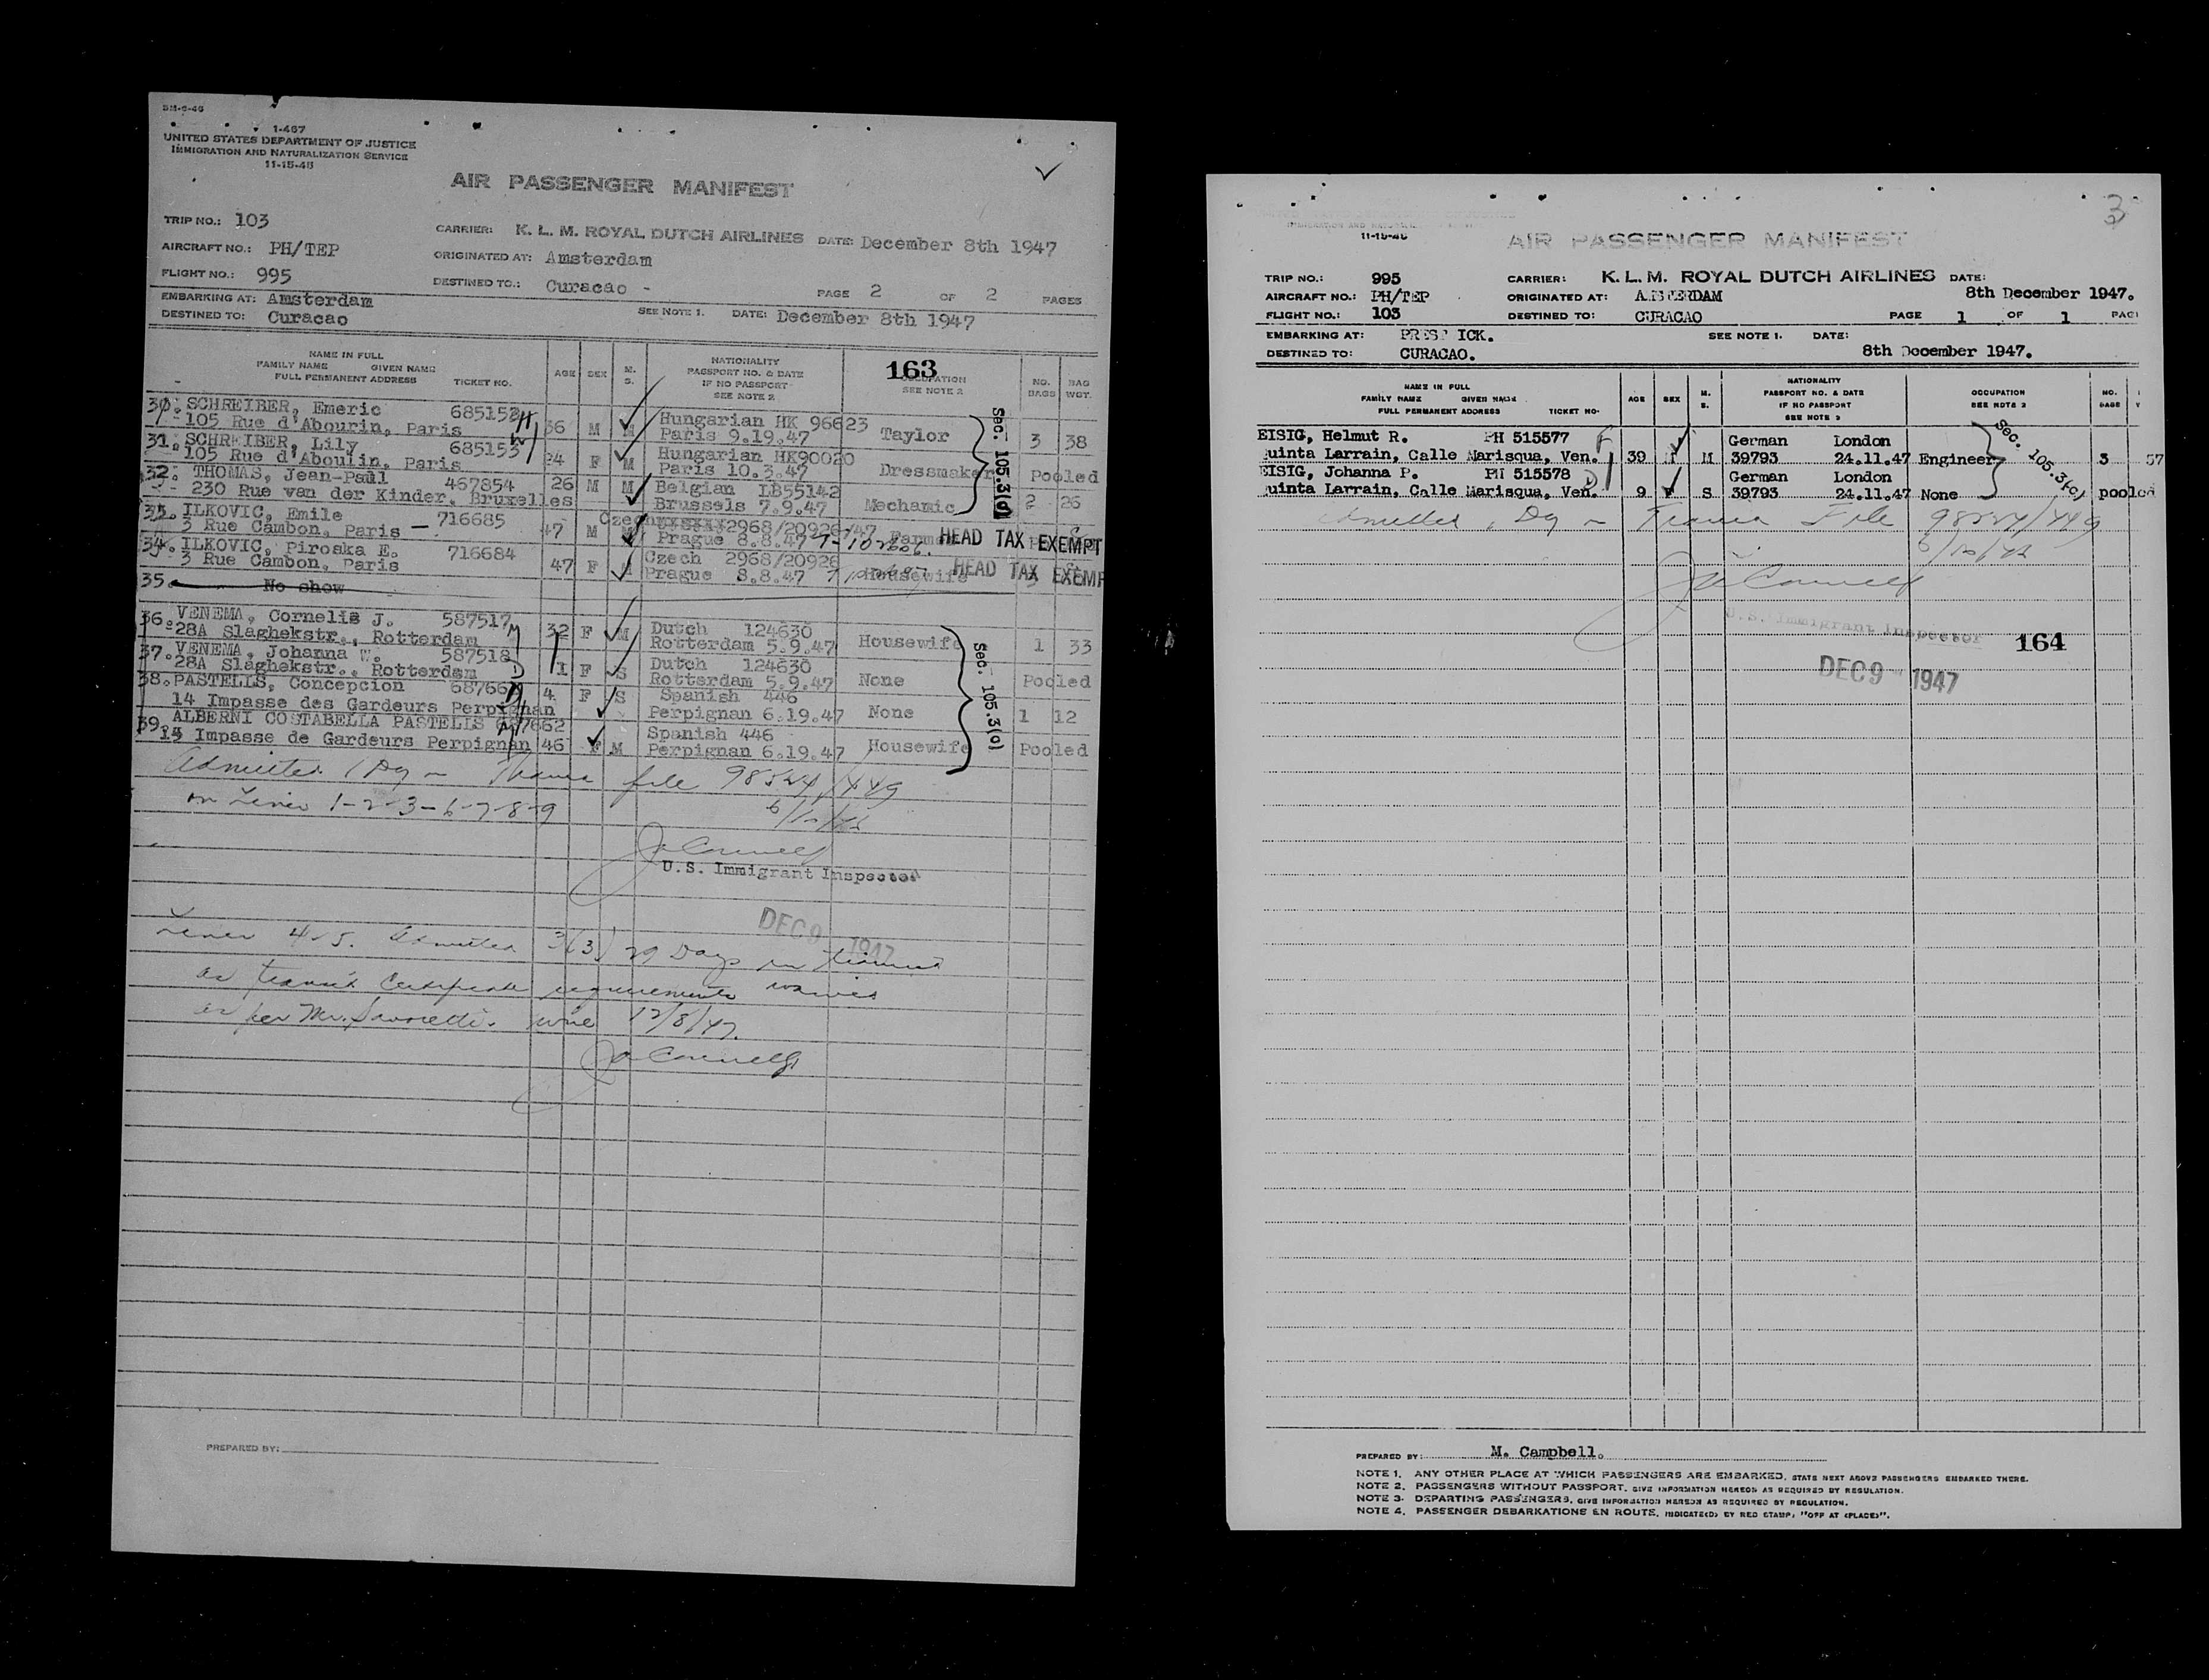 SM-6-46
1-467
UNITED STATES DEPARTMENT OF JUSTICE
IMMIGRATION AND NATURALIZATION SERVICE
11-15-45
AIR PASSENGER MANIFEST
TRIP NO.: 103
CARRIER: K. L. M. ROYAL DUTCH AIRLINES DATE: December 8th 1947
AIRCRAFT NO.: PH/TEP
ORIGINATED AT: Amsterdam
FLIGHT NO.: 995
DESTINED TO.: Curacao - PAGE 2 OF 2 PAGES
EMBARKING AT: Amsterdam
SEE NOTE 1. DATE: December 8th 1947
DESTINED TO: Curacao
NAME IN FULL
FAMILY NAME GIVEN NAME
FULL PERMANENT ADDRESS TICKET NO.
AGE SEX M. S.
NATIONALITY
PASSPORT NO. & DATE
IF NO PASSPORT
SEE NOTE 2
163
OCCUPATION
SEE NOTE 2
NO. BAGS
BAG WGT.
30. SCHREIBER, Emeric 685152 Hungarian HK 96623
105 Rue d'Abourin, Paris 36 M M Paris 9.19.47 Taylor 3 38
31. SCHREIBER, Lily 685153 Hungarian HK90020
105 Rue d'Aboulin, Paris 24 F M Paris 10.3.47 Dressmaker Pooled
32. THOMAS, Jean-Paul 467854 26 M M Belgian LB55142
230 Rue van der Kinder, Bruxelles Brussels 7.9.47 Mechamic 2 26
Sec. 105.3(o)
33. ILKOVIC, Emile 716685 Czech 2968/20928/47
3 Rue Cambon, Paris 47 M M Prague 8.8.47 Farmer HEAD TAX EXEMPT
34. ILKOVIC, Piroska E. 716684 Czech 2968/20928
3 Rue Cambon, Paris 47 F M Prague 8.8.47 Housewife HEAD TAX EXEMP
35. No show
36. VENEMA, Cornelis J. 587517 32 F M Dutch 124630
28A Slaghekstr., Rotterdam Rotterdam 5.9.47 Housewife 1 33
37. VENEMA, Johanna W. 587518 Dutch 124630
28A Slaghekstr., Rotterdam 1 F S Rotterdam 5.9.47 None Pooled
38. PASTELLS, Concepcion 68766 4 F S Spanish 446
14 Impasse des Gardeurs Perpignan Perpignan 6.19.47 None 1 12
39. ALBERNI COSTABELLA PASTELIS 687662 Spanish 446
Impasse de Gardeurs Perpignan 46 F M Perpignan 6.19.47 Housewife Pooled
Sec. 105.3(o)
Admitted 1 Dy file 98524/449
on Lines 1-2-3-6-7-8-9
U.S. Immigrant Inspector
DEC 9 1947
Lines 4-5. Admitted 3(3) 29 Days in transit
as transit Certificate requirements waived
as per Mr. wire 12/8/47.
PREPARED BY:
3
IMMIGRATION AND
11-15-45
AIR PASSENGER MANIFEST
TRIP NO.: 995
CARRIER: K. L. M. ROYAL DUTCH AIRLINES DATE:
AIRCRAFT NO.: PH/TEP
ORIGINATED AT: AMSTERDAM 8th December 1947.
FLIGHT NO.: 103
DESTINED TO: CURACAO PAGE 1 OF 1
EMBARKING AT: PRESTICK.
SEE NOTE 1. DATE:
DESTINED TO: CURACAO. 8th December 1947.
NAME IN FULL
FAMILY NAME GIVEN NAME
FULL PERMANENT ADDRESS TICKET NO.
AGE SEX M. S.
NATIONALITY
PASSPORT NO. & DATE
IF NO PASSPORT
SEE NOTE 2
OCCUPATION
SEE NOTE 2
NO. BAGS
EISIG, Helmut R. PH 515577 German London
uinta Larrain, Calle Marisqua, Ven. 39 M 39793 24.11.47 Engineer 3 57
EISIG, Johanna P. PH 515578 German London
uinta Larrain, Calle Marisqua, Ven. 9 S 39793 24.11.47 None pooled
Sec. 105.3(o)
Admitted 1 Dy File 98524/449
U.S. Immigrant Inspector
164
DEC 9 1947
PREPARED BY: M. Campbell.
NOTE 1. ANY OTHER PLACE AT WHICH PASSENGERS ARE EMBARKED, STATE NEXT ABOVE PASSENGERS EMBARKED THERE.
NOTE 2. PASSENGERS WITHOUT PASSPORT, GIVE INFORMATION HEREON AS REQUIRED BY REGULATION.
NOTE 3. DEPARTING PASSENGERS, GIVE INFORMATION HEREON AS REQUIRED BY REGULATION.
NOTE 4. PASSENGER DEBARKATIONS EN ROUTE, INDICATE(D) BY RED STAMP, "OFF AT (PLACE)".